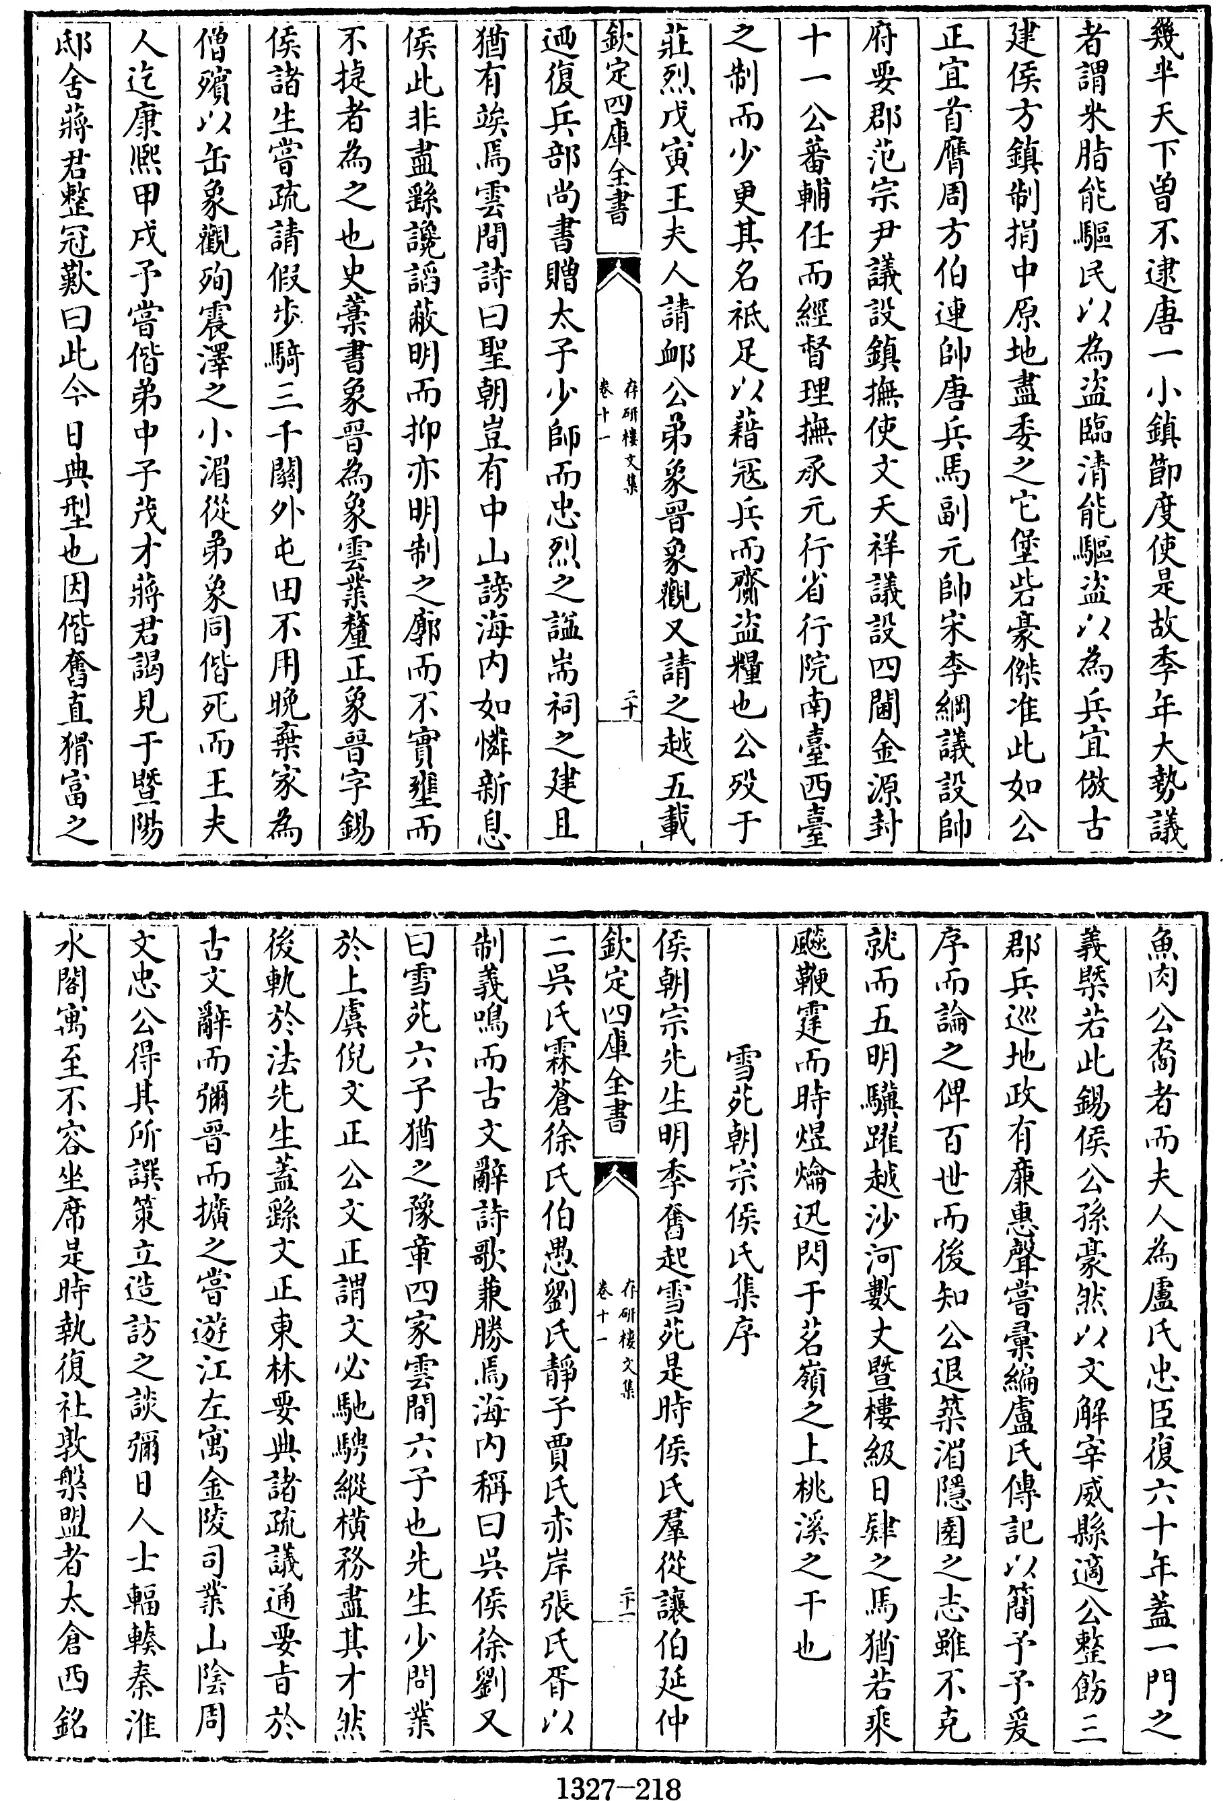 幾半天下曾不逮唐一小鎮節度使是故季年大勢議
者謂米脂能驅民以為盜臨清能驅盜以為兵宜倣古
建侯方鎮制捐中原地盡委之它堡砦豪傑准此如公
正宜首膺周方伯連帥唐兵馬副元帥宋李綱議設帥
府要郡范宗尹議設鎮撫使文天祥議設四閫金源封
十一公蕃輔任而經督理撫承元行省行院南臺西臺
之制而少更其名祗足以藉寇兵而齎盜糧也公歿于
莊烈戊寅王夫人請卹公弟象晉象觀又請之越五載
欽定四庫全書
存研樓文集
卷十一
二十
迺復兵部尚書贈太子少師而忠烈之諡耑祠之建且
猶有竢焉雲間詩曰聖朝豈有中山謗海內如憐新息
侯此非盡繇讒謟蔽明而抑亦明制之廓而不實壅而
不捷者為之也史藁書象晉為象雲業釐正象晉字錫
侯諸生嘗疏請假步騎三千關外屯田不用晚棄家為
僧殯以缶象觀殉震澤之小湄從弟象同偕死而王夫
人迄康熙甲戌予嘗偕弟中子茂才蔣君謁見于暨陽
邸舍蔣君整冠歎曰此今日典型也因偕奮直猾富之
魚肉公裔者而夫人為盧氏忠臣復六十年蓋一門之
義槩若此錫侯公孫豪然以文解宰威縣適公整飭三
郡兵巡地政有廉惠聲嘗彙編盧氏傳記以簡予予爰
序而論之俾百世而後知公退築湄隱園之志雖不克
就而五明驥躍越沙河數丈暨樓級日肄之馬猶若乘
飈鞭霆而時煜爚迅閃于茗嶺之上桃溪之干也
雪苑朝宗侯氏集序
侯朝宗先生明季奮起雪苑是時侯氏羣從讓伯延仲
欽定四庫全書
存研樓文集
卷十一
二十一
二吳氏霖蒼徐氏伯愚劉氏靜子賈氏赤岸張氏胥以
制義鳴而古文辭詩歌兼勝焉海內稱曰吳侯徐劉又
曰雪苑六子猶之豫章四家雲間六子也先生少問業
於上虞倪文正公文正謂文必馳騁縱橫務盡其才然
後軌於法先生蓋繇文正東林要典諸疏議通要旨於
古文辭而彌晉而擴之嘗遊江左寓金陵司業山陰周
文忠公得其所譔策立造訪之談彌日人士輻輳秦淮
水閣寓至不容坐席是時執復社敦槃盟者太倉西銘
1327-218